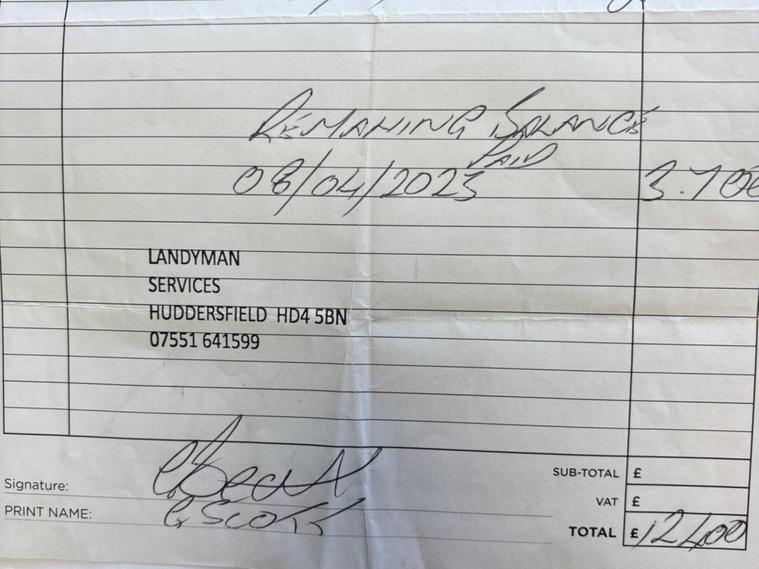 REMAINING BALANCE
PAID
08/04/2023 3.700
LANDYMAN
SERVICES
HUDDERSFIELD HD4 5BN
07551 641599
SUB-TOTAL £
Signature:
VAT £
PRINT NAME: G SCOTT
TOTAL £12400